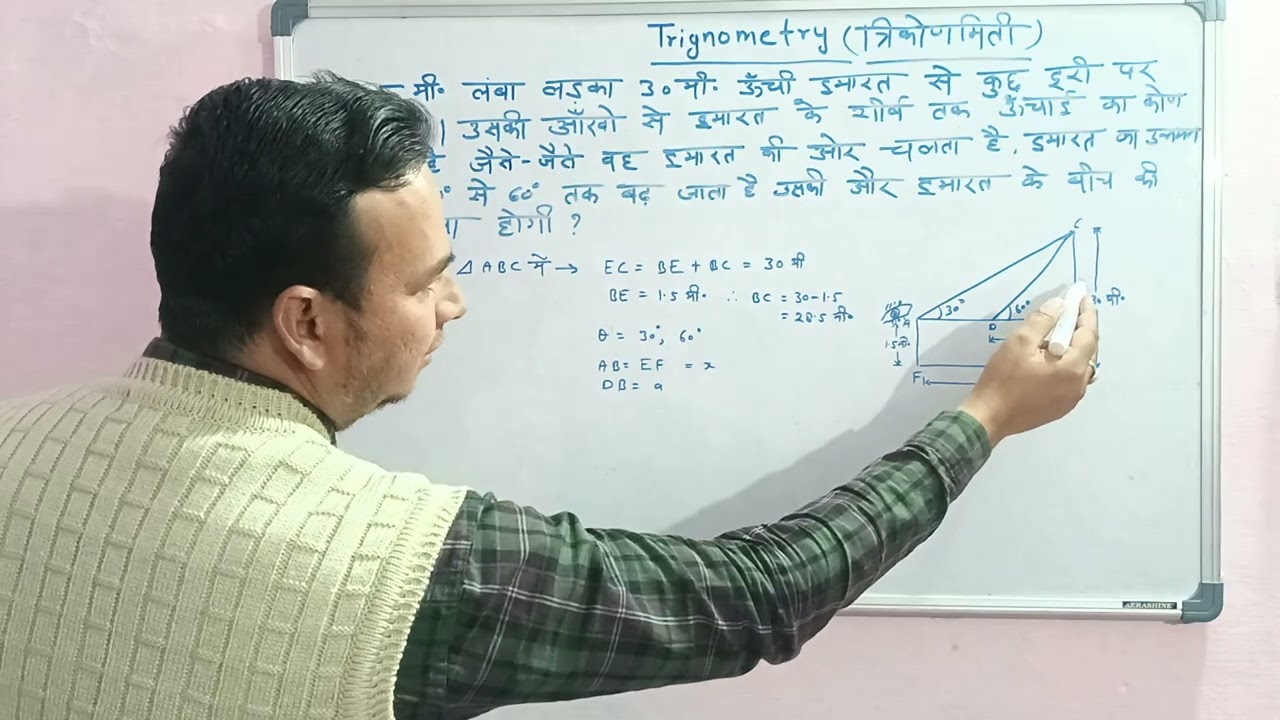 Trignometry (त्रिकोणमिती)
मी॰ लंबा लड़का 30 मी॰ ऊँची इमारत से कुछ दूरी पर
। उसकी आँखो से इमारत के शीर्ष तक ऊँचाई का कोण
है जैसे-जैसे वह इमारत की ओर चलता है. इमारत का उन्नयन
° से 60° तक बढ़ जाता है उसकी और इमारत के बीच की
होगी ?
Δ ABC में → EC = BE + BC = 30 मी
BE = 1.5 मी॰ ∴ BC = 30-1.5
= 28.5 मी॰
θ = 30°, 60°
AB = EF = x
DB = a
C
30°
60°
30 मी॰
A
D
1.5 मी॰
F
AERASHINE